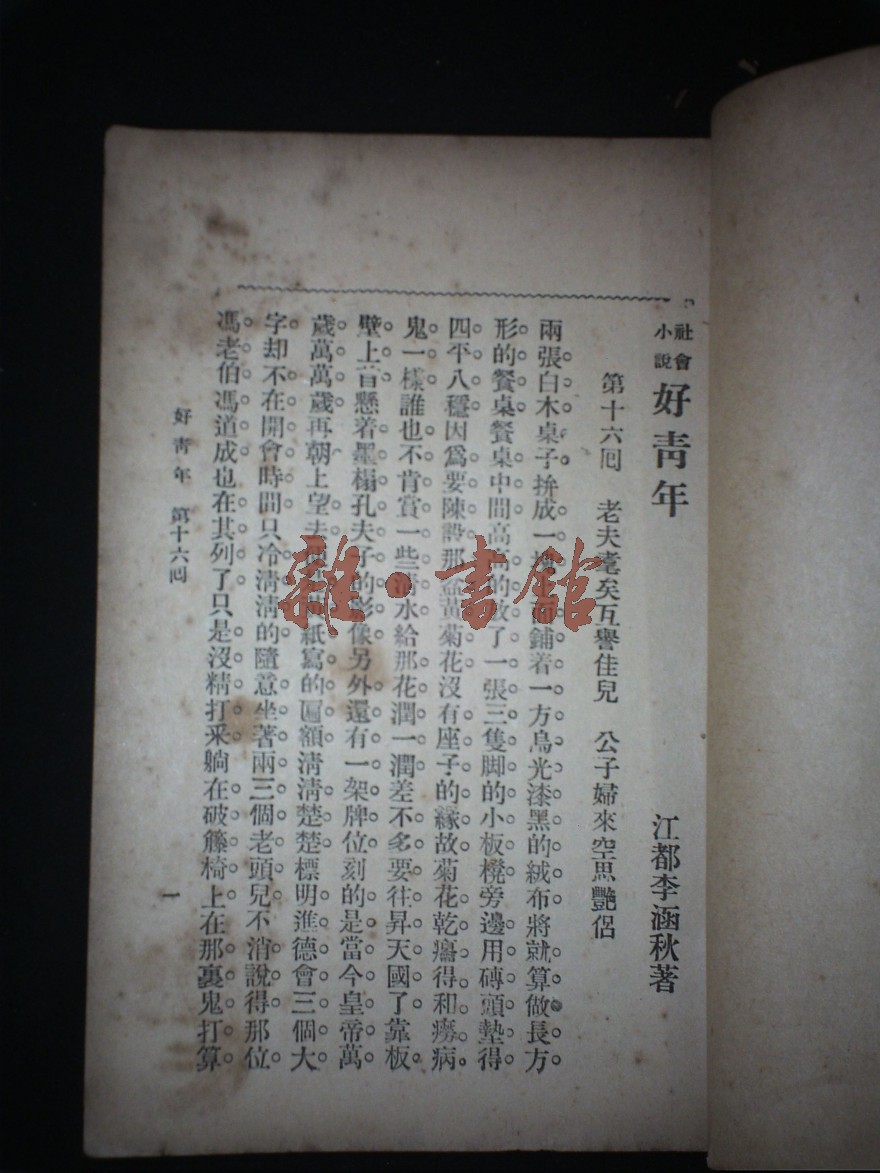 社會
小說
好靑年
江都李涵秋著
第十六囘 老夫耄矣互譽佳兒 公子婦來空思艷侶
兩張白木桌子拚成一 鋪着一方烏光漆黑的絨布將就算做長方
形的餐桌餐桌中間高高的放了一張三隻脚的小板櫈旁邊用磚頭墊得
四平八穩因爲要陳設那盆黃菊花沒有座子的緣故菊花乾癟得和癆病
鬼一樣誰也不肯賞一些淸水給那花潤一潤差不多要往昇天國了靠板
壁上首懸着墨榻孔夫子的影像另外還有一架牌位刻的是當今皇帝萬
歲萬萬歲再朝上望去 紙寫的匾額淸淸楚楚標明進德會三個大
字却不在開會時間只冷淸淸的隨意坐著兩三個老頭兒不消說得那位
馮老伯馮道成也在其列了只是沒精打采躺在破籐椅上在那裏鬼打算
好靑年 第十六囘
一
雜·書館